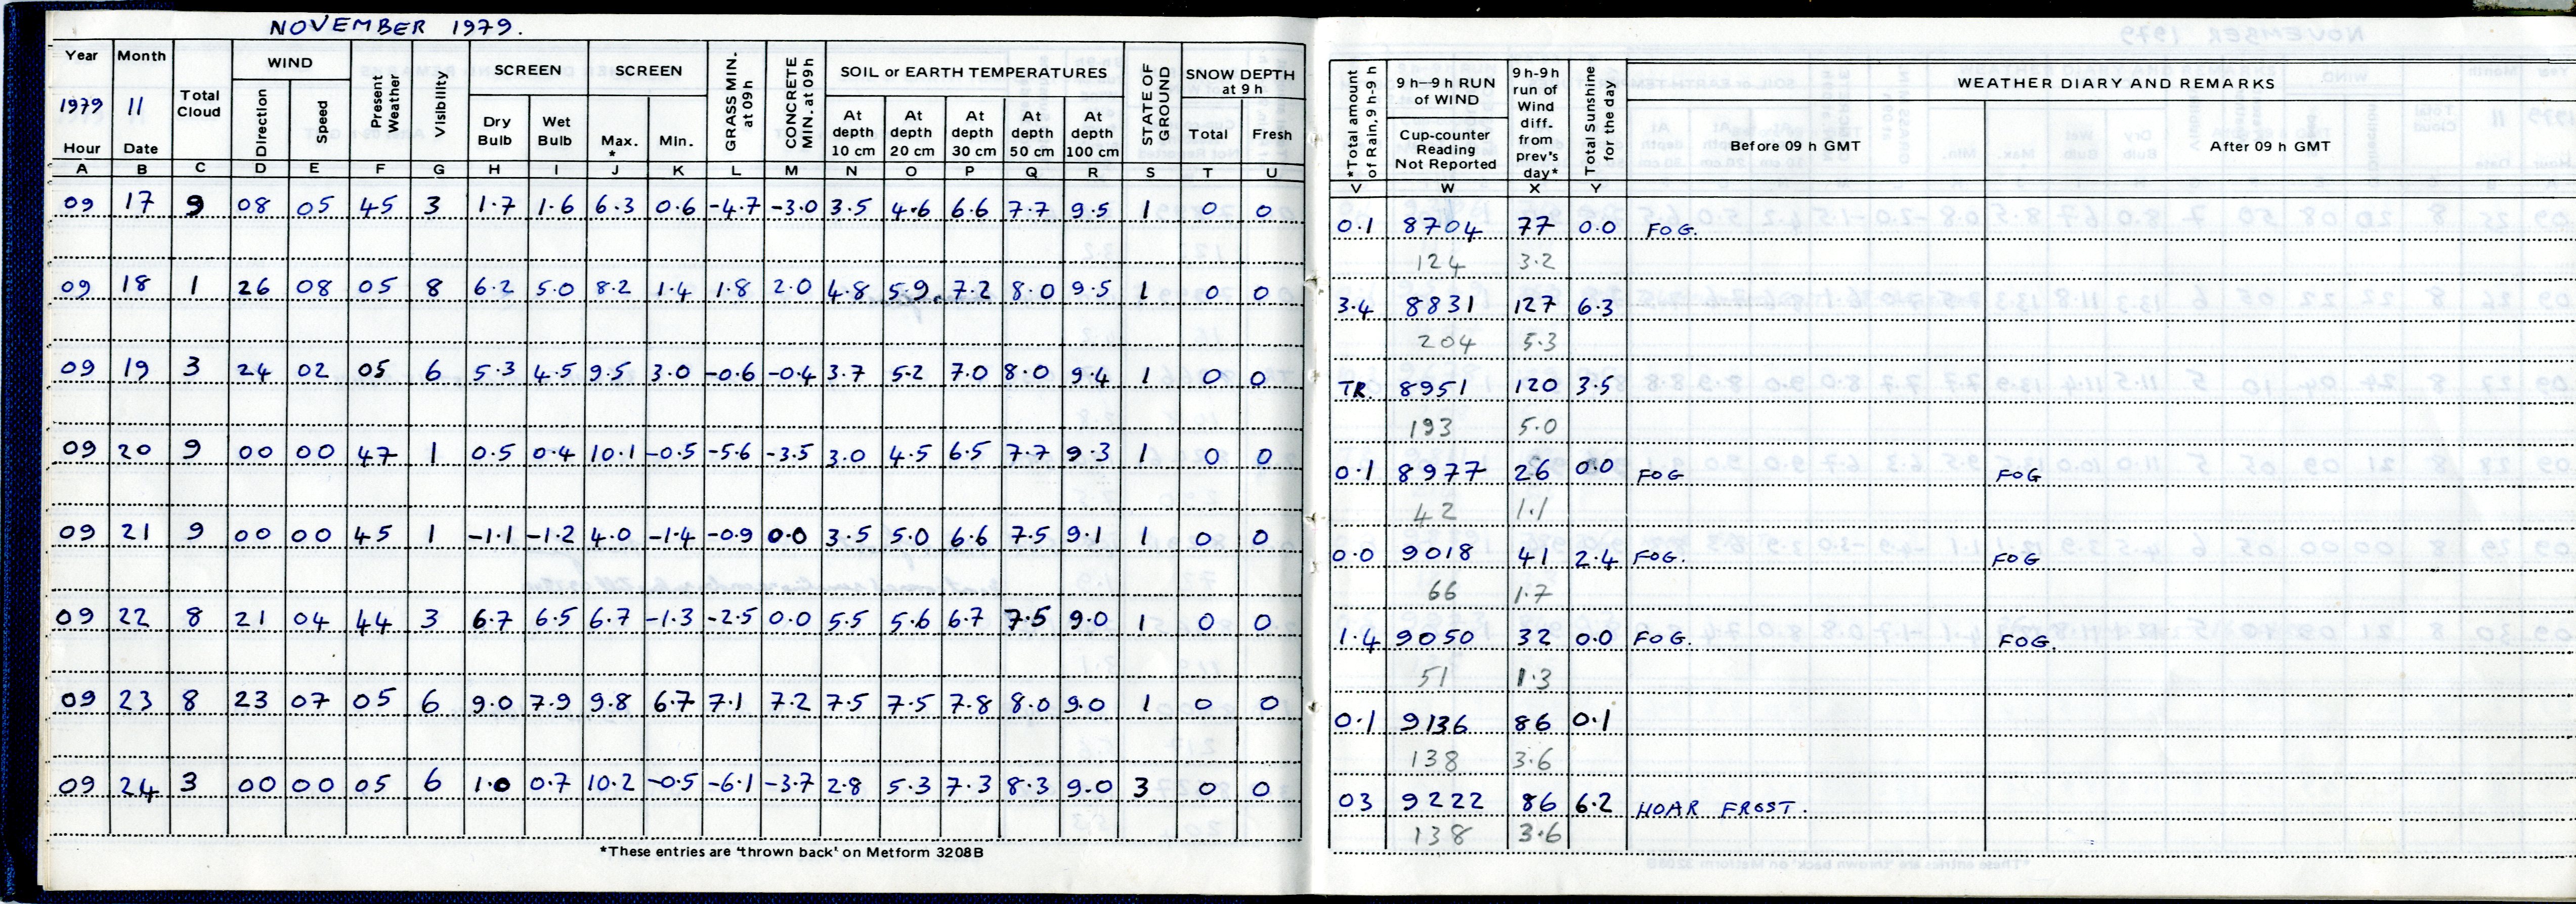 NOVEMBER 1979.
Year Month Total Cloud WIND Present Weather Visibility SCREEN SCREEN GRASS MIN. at 09h CONCRETE MIN. at 09h SOIL or EARTH TEMPERATURES STATE OF GROUND SNOW DEPTH at 9 h
1979 11 Direction Speed Dry Bulb Wet Bulb Max. * Min. At depth 10 cm At depth 20 cm At depth 30 cm At depth 50 cm At depth 100 cm Total Fresh
Hour Date
A B C D E F G H I J K L M N O P Q R S T U
09 17 9 08 05 45 3 1.7 1.6 6.3 0.6 -4.7 -3.0 3.5 4.6 6.6 7.7 9.5 1 0 0
09 18 1 26 08 05 8 6.2 5.0 8.2 1.4 1.8 2.0 4.8 5.9 7.2 8.0 9.5 1 0 0
09 19 3 24 02 05 6 5.3 4.5 9.5 3.0 -0.6 -0.4 3.7 5.2 7.0 8.0 9.4 1 0 0
09 20 9 00 00 47 1 0.5 0.4 10.1 -0.5 -5.6 -3.5 3.0 4.5 6.5 7.7 9.3 1 0 0
09 21 9 00 00 45 1 -1.1 -1.2 4.0 -1.4 -0.9 0.0 3.5 5.0 6.6 7.5 9.1 1 0 0
09 22 8 21 04 44 3 6.7 6.5 6.7 -1.3 -2.5 0.0 5.5 5.6 6.7 7.5 9.0 1 0 0
09 23 8 23 07 05 6 9.0 7.9 9.8 6.7 7.1 7.2 7.5 7.5 7.8 8.0 9.0 1 0 0
09 24 3 00 00 05 6 1.0 0.7 10.2 -0.5 -6.1 -3.7 2.8 5.3 7.3 8.3 9.0 3 0 0
*These entries are 'thrown back' on Metform 3208B
*Total amount of Rain, 9 h-9 h 9 h—9 h RUN of WIND 9 h-9h run of Wind diff. from prev's day* Total Sunshine for the day WEATHER DIARY AND REMARKS
Cup-counter Reading Not Reported Before 09 h GMT After 09 h GMT
V W X Y
0.1 8704 77 0.0 FOG.
124 3.2
3.4 8831 127 6.3
204 5.3
TR. 8951 120 3.5
193 5.0
0.1 8977 26 0.0 FOG FOG
42 1.1
0.0 9018 41 2.4 FOG. FOG
66 1.7
1.4 9050 32 0.0 FOG. FOG.
51 1.3
0.1 9136 86 0.1
138 3.6
03 9222 86 6.2 HOAR FROST.
138 3.6